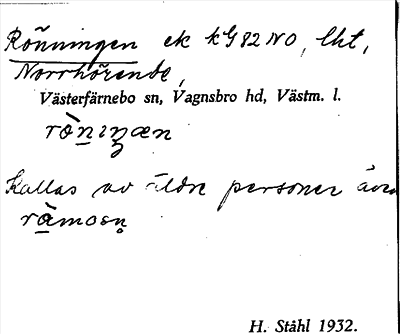 Rönningen ek kG 82 NO, lht,
Norrhörende,
Västerfärnebo sn, Vagnsbro hd, Västm. l.
rö̀niŋæn
Kallas av äldre personer även
rà̱mosn̥
H. Ståhl 1932.